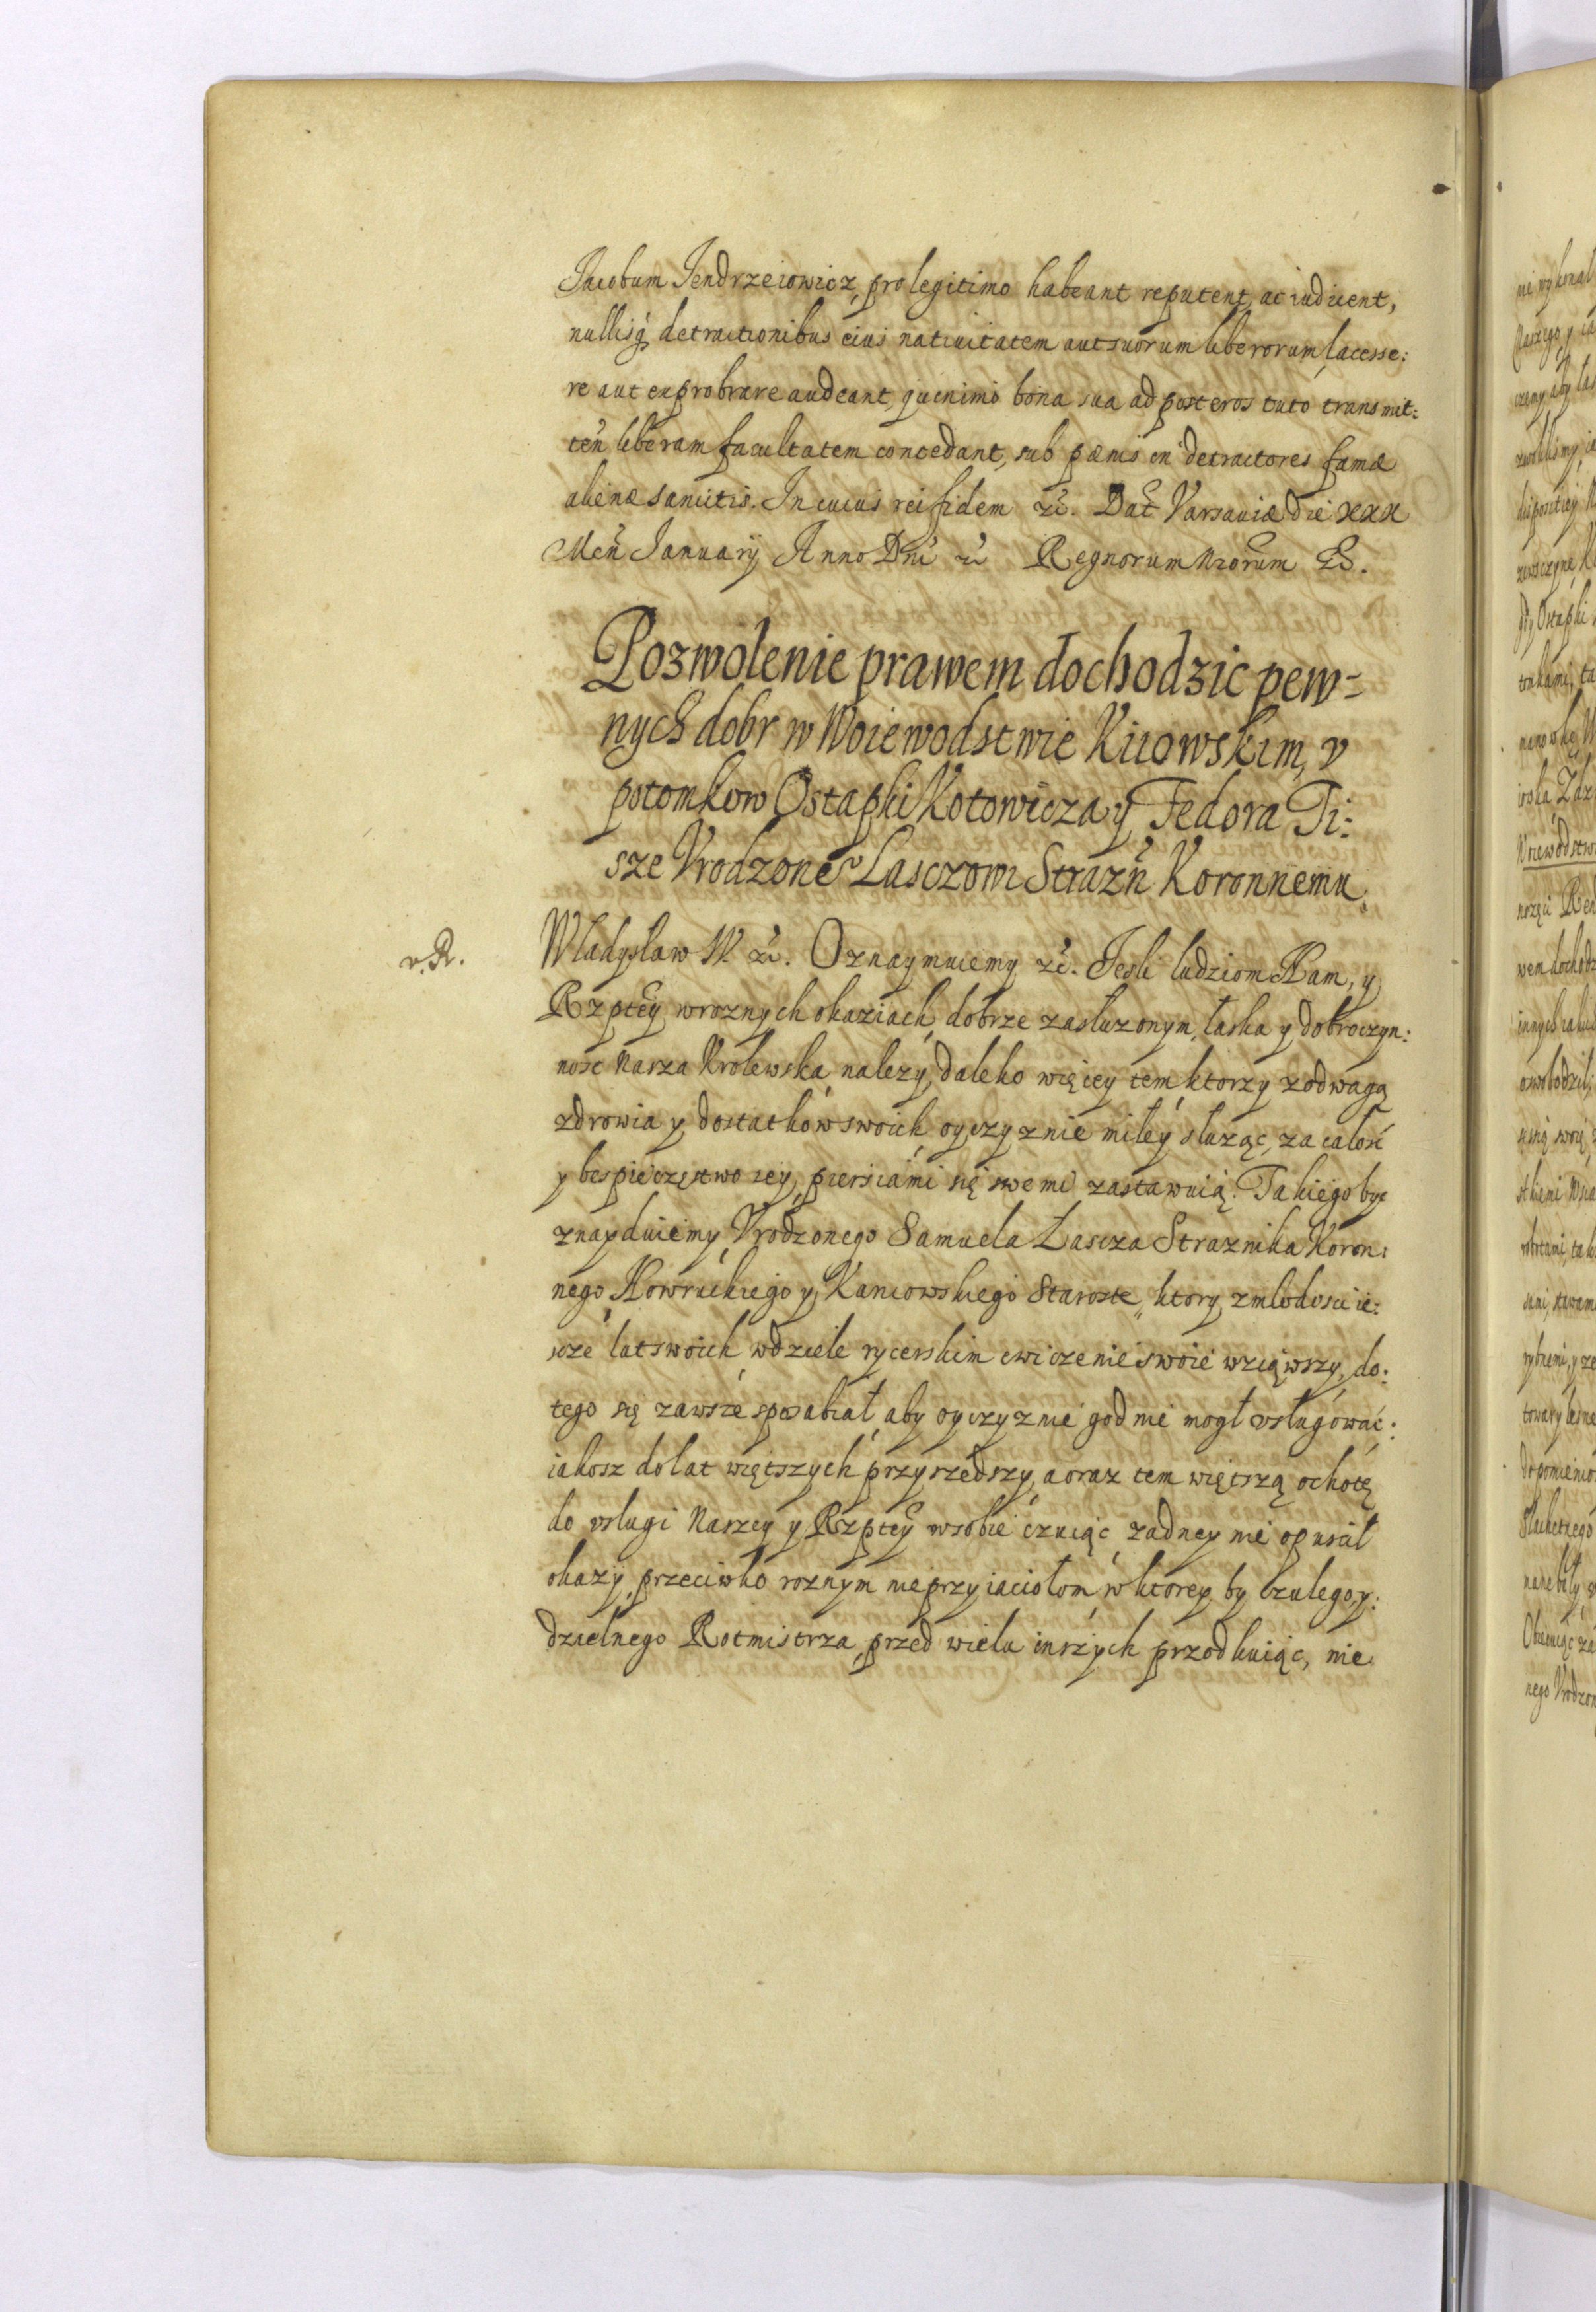 Jacobum Jendrzeiowicz, pro legitimo habeant reputent, ac iudicent,
nullisq₃ detractionibus eius natiuitatem aut suorum liberorum, lacesse:
re aut exprobrare audeant, quinimo bona sua ad posteros tuto transmit:
teñ liberam facultatem concedant, sub pænis in detractores famæ
alienæ sancitis. In cuius rei fidem &c. Dat Varsauiæ die XXX
Meñ January Anno Dni &c Regnorum Nrorum &.
Pozwolenie prawem dochodzic pew=
nych dobr w Woiewodstwie Kiiowskim, v
potomkow Ostapki Kotowicza y Fedora Ti:
sze Vrodzone° Lasczowi Strazñ Koronnemu.
v. R.
Wladysław W. &c. Oznaymuiemy &c. Jesli ludziom Nam, y
Rzptey wroznych okaziach dobrze zasłuzonym, łaska y dobroczyn:
nosc Nasza Krolewska nalezy, daleko więcey tem, ktorzy z odwagą
zdrowia y dostatkow swoich oyczyznie miłey słuząc, za całosć
y bespieczęstwo iey piersiami się swemi zastawuią. Takiego byc
znayduiemy Vrodzonego Samuela Łascza Straznika Koron:
nego Nowruckiego y Kaniowskiego Staroste, ktory zmlodosci ie:
scze lat swoich wdziele rycerskim cwiczenie swoie wziąwszy, do:
tego się zawsze sposabiał, aby oyczyznie godnie mogł vsługować:
iakosz do lat większych przyszedszy, a oraz tem większą ochotę
do vslugi Naszey y Rzptey wsobie czuiąc zadney nie opuscił
okazÿ przeciwko roznym nieprzyiaciołom, w ktorey by czulego, y:
dzielnego Rotmistrza, przed wielu inszych przodkuiąc, nie